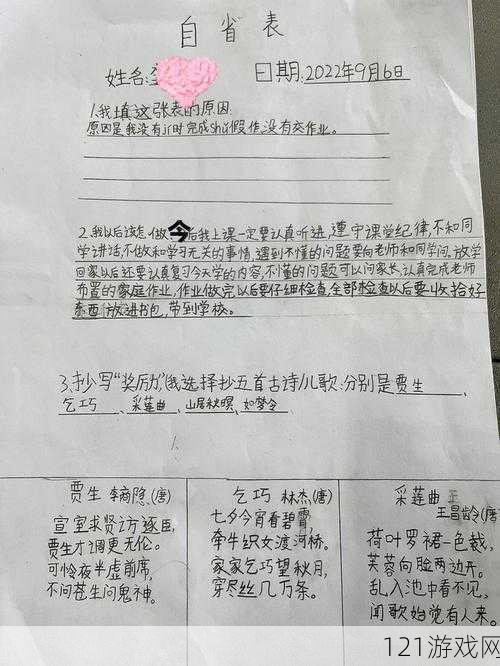 自省表
姓名: 日期:2022年9月6日
1.我填这张表的原因
原因是我没有jr时完成shǔ假作没有交作业。
2.我以后该怎么做 今后我上课一定要认真听进,遵守课堂纪律,不和同
学讲话,不做和学习无关的事情,遇到不懂的问题要向老师和同学问。放学
回家以后还要认真复习今天学的内容,不懂的问题可以问家长,认真完成老师
布置的家庭作业,作业做完以后要仔细检查,全部检查以后要收拾好
东西,放进书包,带到学校。
3.抄写“奖历力”(我选择抄五首古诗/儿歌:分别是贾生、
乞巧、采莲曲、山居秋暝、如梦令
贾生 李商隐(唐)
宣室求贤访逐臣,
贾生才调更无伦。
可怜夜半虚前席,
不问苍生问鬼神。
乞巧 林杰(唐)
七夕今宵看碧霄,
牵牛织女渡河桥。
家家乞巧望秋月,
穿尽丝几万条。
采莲曲 王
王昌龄(唐)
荷叶罗裙一色裁,
芙蓉向脸两边开。
乱入池中看不见,
闻歌始觉有人来。
121游戏网